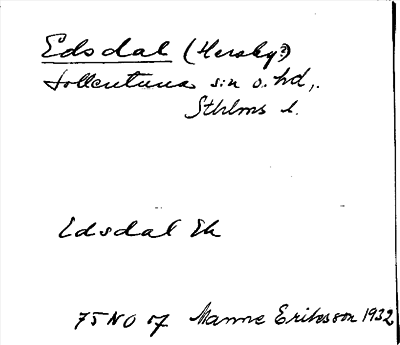 Edsdal (Hersby?)
Sollentuna sn o. hd,.
Sthlms l.
Edsdal Ek
75 NO of Manne Eriksson 1932